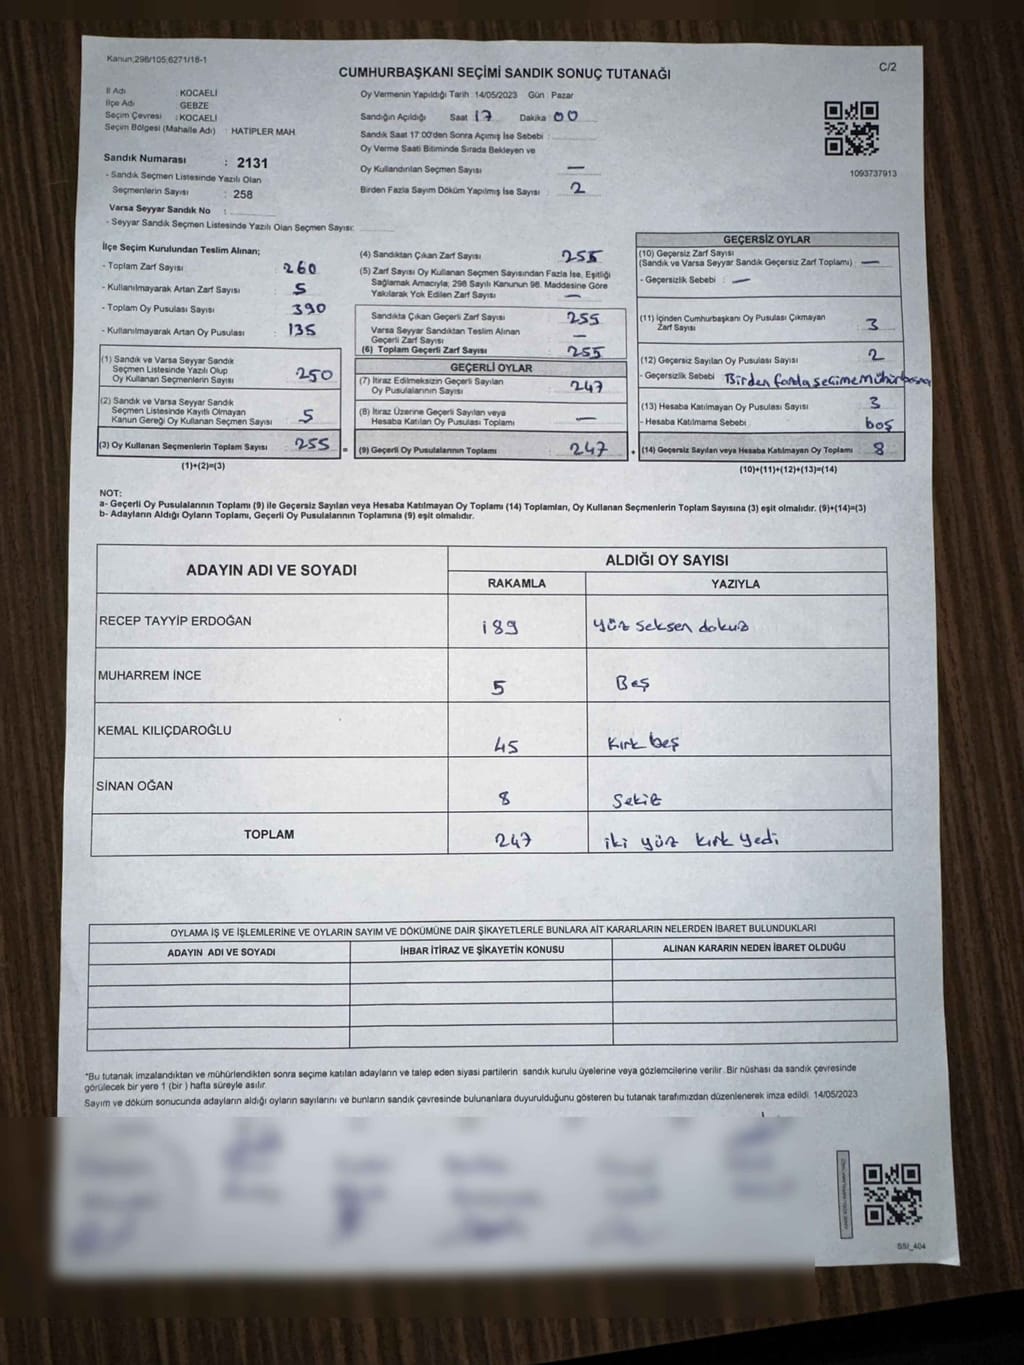 Kanun;298/105;6271/18-1
CUMHURBAŞKANI SEÇİMİ SANDIK SONUÇ TUTANAĞI
C/2
İl Adı : KOCAELİ
İlçe Adı : GEBZE
Seçim Çevresi : KOCAELİ
Seçim Bölgesi (Mahalle Adı) : HATİPLER MAH.
Sandık Numarası : 2131
- Sandık Seçmen Listesinde Yazılı Olan
Seçmenlerin Sayısı : 258
Varsa Seyyar Sandık No :
- Seyyar Sandık Seçmen Listesinde Yazılı Olan Seçmen Sayısı:
Oy Vermenin Yapıldığı Tarih : 14/05/2023 Gün : Pazar
Sandığın Açıldığı Saat 17 Dakika 00
Sandık Saat 17:00'den Sonra Açımış İse Sebebi :
Oy Verme Saati Bitiminde Sırada Bekleyen ve
Oy Kullandırılan Seçmen Sayısı —
Birden Fazla Sayım Döküm Yapılmış İse Sayısı : 2
1093737913
İlçe Seçim Kurulundan Teslim Alınan;
- Toplam Zarf Sayısı : 260
- Kullanılmayarak Artan Zarf Sayısı : 5
- Toplam Oy Pusulası Sayısı : 390
- Kullanılmayarak Artan Oy Pusulası : 135
(1) Sandık ve Varsa Seyyar Sandık
Seçmen Listesinde Yazılı Olup
Oy Kullanan Seçmenlerin Sayısı : 250
(2) Sandık ve Varsa Seyyar Sandık
Seçmen Listesinde Kayıtlı Olmayan
Kanun Gereği Oy Kullanan Seçmen Sayısı : 5
(3) Oy Kullanan Seçmenlerin Toplam Sayısı : 255 =
(1)+(2)=(3)
(4) Sandıktan Çıkan Zarf Sayısı : 255
(5) Zarf Sayısı Oy Kullanan Seçmen Sayısından Fazla İse, Eşitliği
Sağlamak Amacıyla; 298 Sayılı Kanunun 98. Maddesine Göre
Yakılarak Yok Edilen Zarf Sayısı : —
Sandıkta Çıkan Geçerli Zarf Sayısı : 255
Varsa Seyyar Sandıktan Teslim Alınan
Geçerli Zarf Sayısı : —
(6) Toplam Geçerli Zarf Sayısı : 255
GEÇERLİ OYLAR
(7) İtiraz Edilmeksizin Geçerli Sayılan
Oy Pusulalarının Sayısı : 247
(8) İtiraz Üzerine Geçerli Sayılan veya
Hesaba Katılan Oy Pusulası Toplamı : —
(9) Geçerli Oy Pusulalarının Toplamı : 247 +
GEÇERSİZ OYLAR
(10) Geçersiz Zarf Sayısı
(Sandık ve Varsa Seyyar Sandık Geçersiz Zarf Toplamı) : —
- Geçersizlik Sebebi : —
(11) İçinden Cumhurbaşkanı Oy Pusulası Çıkmayan
Zarf Sayısı : 3
(12) Geçersiz Sayılan Oy Pusulası Sayısı : 2
- Geçersizlik Sebebi : Birden fazla seçime mühür basma
(13) Hesaba Katılmayan Oy Pusulası Sayısı : 3
- Hesaba Katılmama Sebebi : boş
(14) Geçersiz Sayılan veya Hesaba Katılmayan Oy Toplamı : 8
(10)+(11)+(12)+(13)=(14)
NOT:
a- Geçerli Oy Pusulalarının Toplamı (9) ile Geçersiz Sayılan veya Hesaba Katılmayan Oy Toplamı (14) Toplamları, Oy Kullanan Seçmenlerin Toplam Sayısına (3) eşit olmalıdır. (9)+(14)=(3)
b- Adayların Aldığı Oyların Toplamı, Geçerli Oy Pusulalarının Toplamına (9) eşit olmalıdır.
ADAYIN ADI VE SOYADI
ALDIĞI OY SAYISI
RAKAMLA YAZIYLA
RECEP TAYYİP ERDOĞAN 189 yüz seksen dokuz
MUHARREM İNCE 5 Beş
KEMAL KILIÇDAROĞLU 45 kırk beş
SİNAN OĞAN 8 sekiz
TOPLAM 247 iki yüz kırk yedi
OYLAMA İŞ VE İŞLEMLERİNE VE OYLARIN SAYIM VE DÖKÜMÜNE DAİR ŞİKAYETLERLE BUNLARA AİT KARARLARIN NELERDEN İBARET BULUNDUKLARI
ADAYIN ADI VE SOYADI İHBAR İTİRAZ VE ŞİKAYETİN KONUSU ALINAN KARARIN NEDEN İBARET OLDUĞU
*Bu tutanak imzalandıktan ve mühürlendikten sonra seçime katılan adayların ve talep eden siyasi partilerin sandık kurulu üyelerine veya gözlemcilerine verilir. Bir nüshası da sandık çevresinde
görülecek bir yere 1 (bir ) hafta süreyle asılır.
Sayım ve döküm sonucunda adayların aldığı oyların sayılarını ve bunların sandık çevresinde bulunanlara duyurulduğunu gösteren bu tutanak tarafımızdan düzenlenerek imza edildi. 14/05/2023
SSI_404